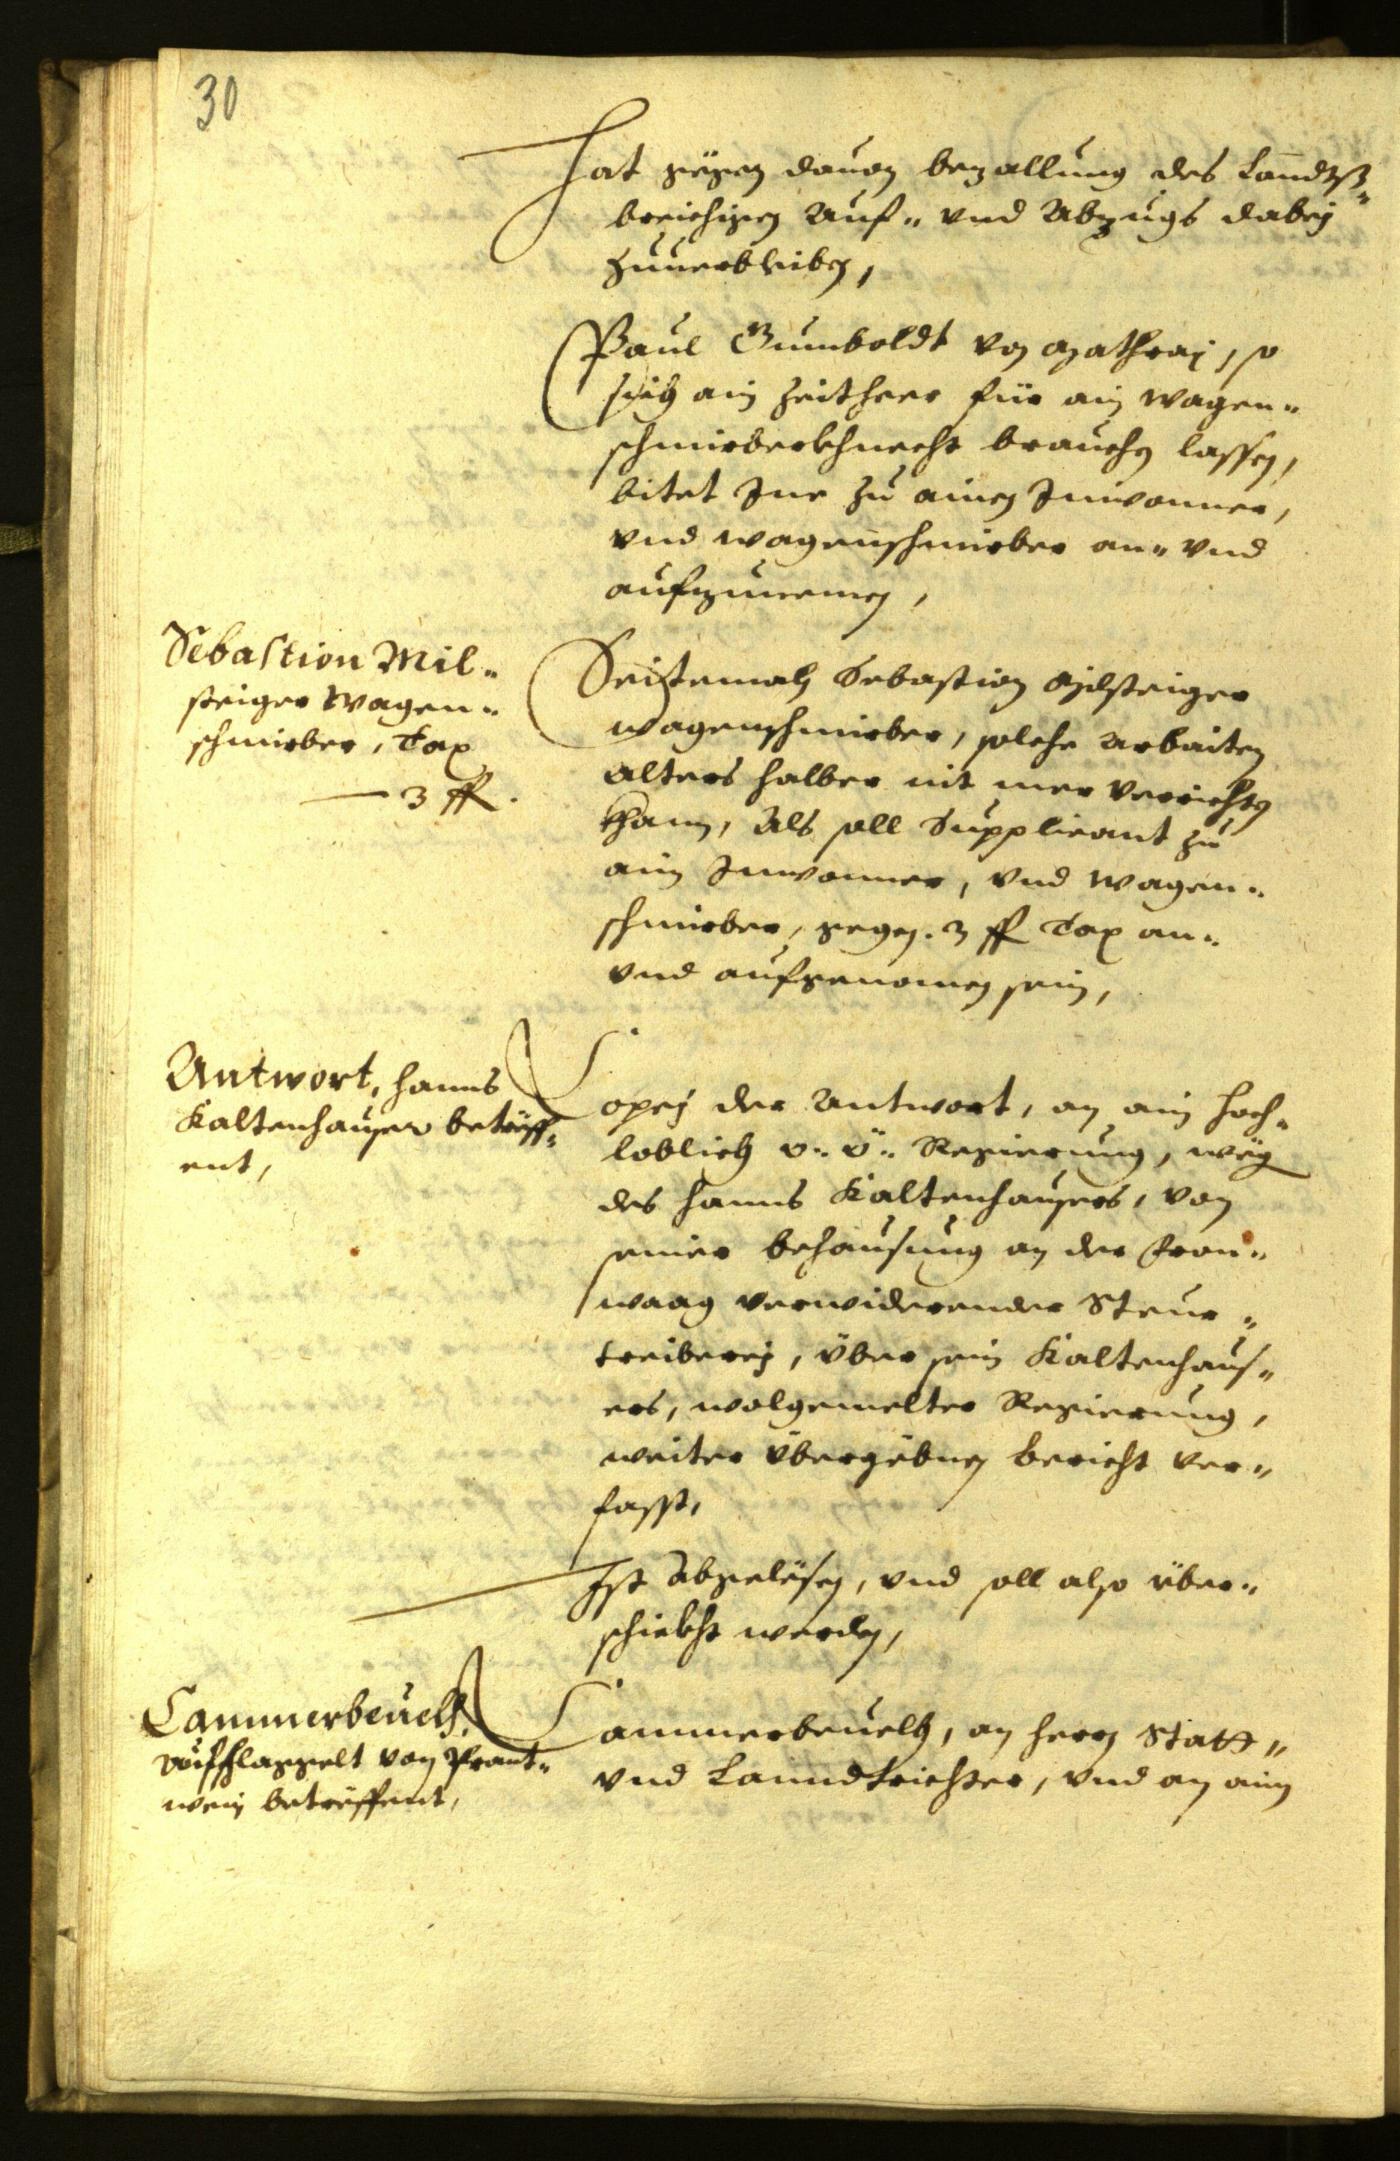 30
Hat gegen dauon bezallung des Landts„
breichigen Auf„ vnd Abzugs dabej
zuuerbleiben,
Paul Gumboldt von Mathraj, so
sich ain Zeither für ain Wagen„
schmirberkhnecht brauchen lassen,
bitet Ine zu ainen Innwonner,
vnd wagenschmirber an„ vnd
aufzunemen,
Sebastion Mil„
steiger Wagen„
schmirber, Tax
— 3 ff.
Seitemalen Sebastion Milsteiger
wagenschmirber, solche Arbaiten
Alters halber nit mer verrichten
khann, Als soll Supplicant zu
ain Innwonner, vnd Wagen„
schmirber, gegen 3 ff Tax an„
vnd aufgenomen sein,
Antwort, Hanns
Kaltenhauser betreff„
ent,
Copej der Antwort, an ain Hoch„
loblich v: ö: Regierung, weg
des Hanns Kaltenhausers, von
seiner behausung an der Fron„
waag verwiderender Steur„
treiberej, über sein Kaltenhaus„
ers, wolgemelter Regierung,
weiter übergebnen bericht ver„
fasst,
Ist abgelesen, vnd soll also über„
schickht werden,
Cammerbeuelh,
Aufschlaggelt von Prant„
wein betreffent,
Cammerbeuelh, an herrn Statt„
vnd Lanndtrichter, vnd an ain